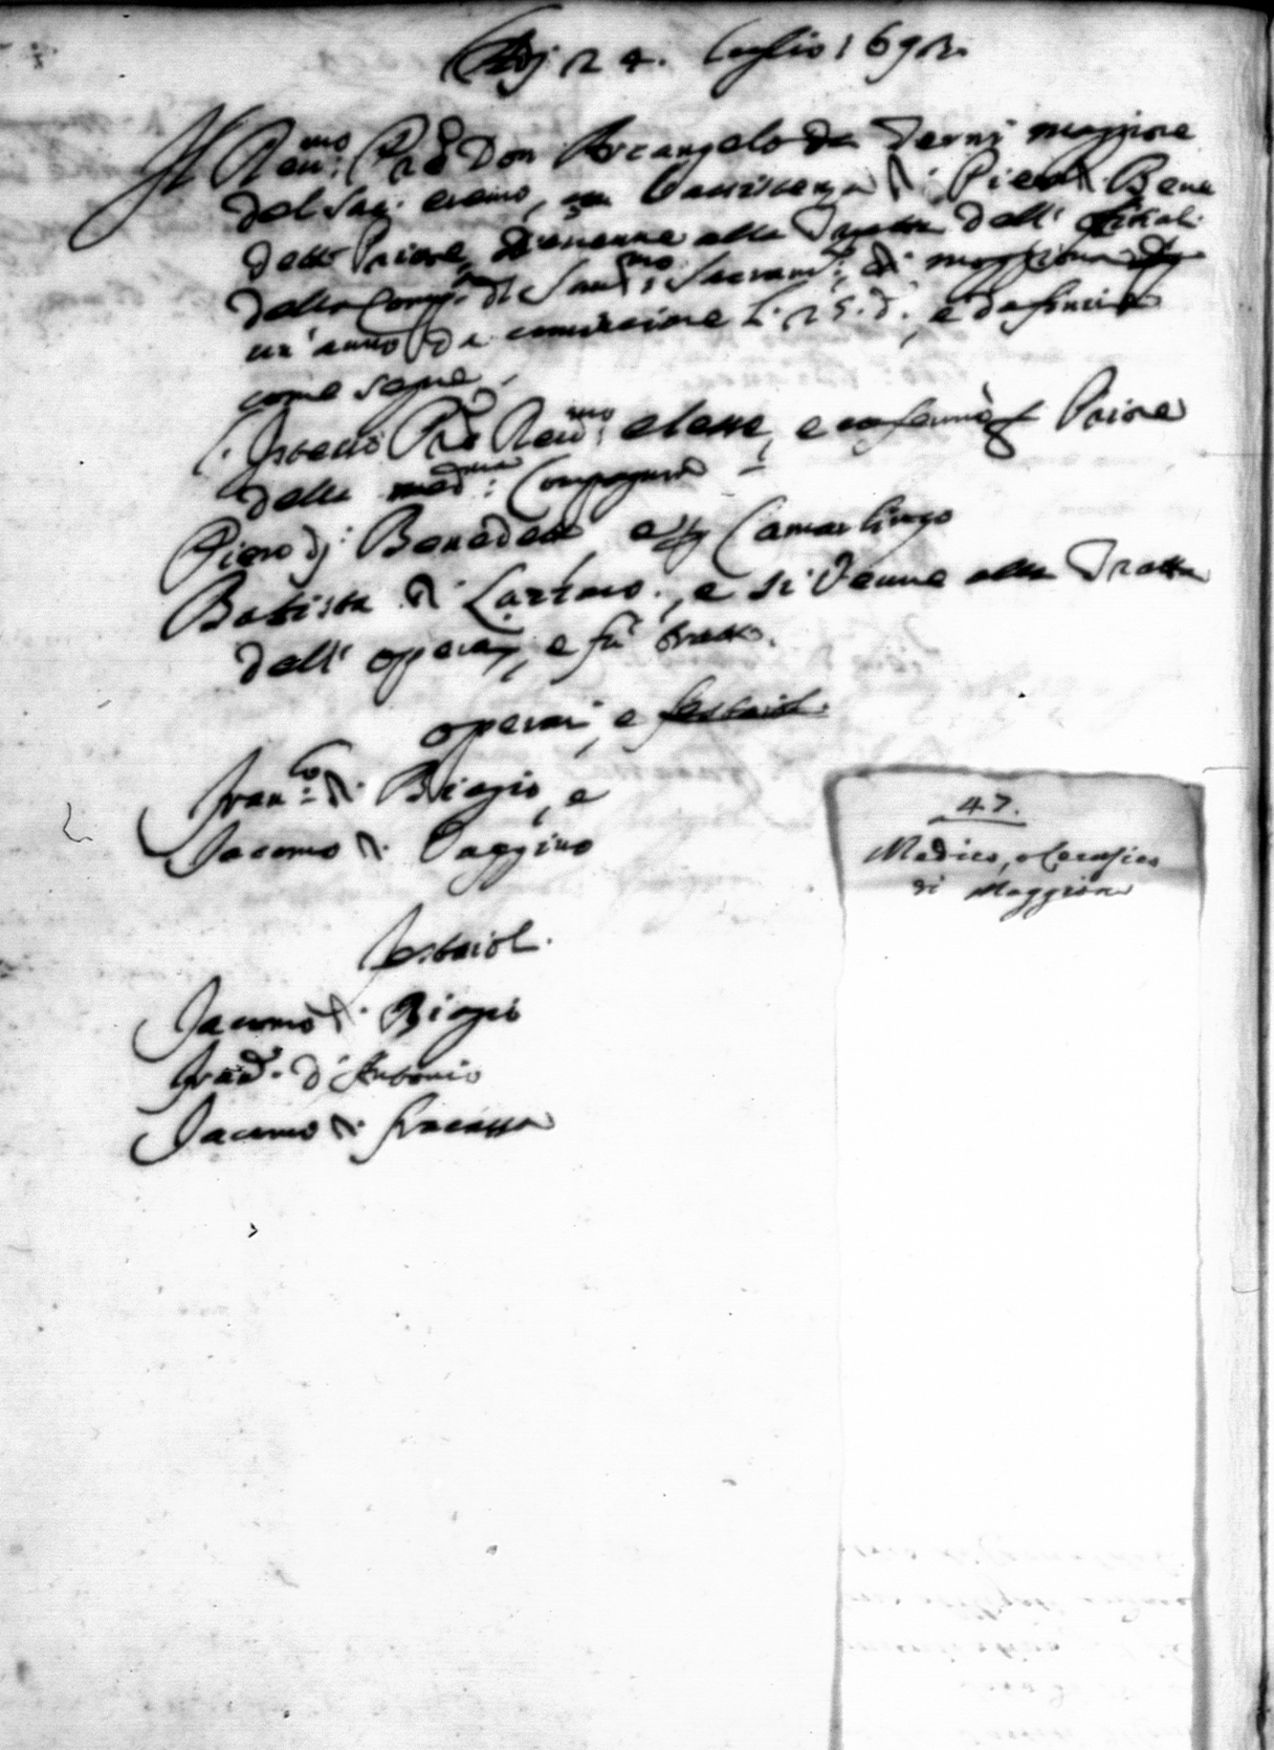 Adj 24. Luglio 1692.
Il Reu:mo P̃rẽ Don Arcangelo da Terni maggiore
del Sac. eremo, con l'assistenza di Piero di Bene
detto Priore, diuenne alla Tratta dell' offitiali
della Comp.a del Sant.mo Sacram.to di moggiona p
un' anno da cominciare li 25. d.o, e da finire
come segue
L' Istesso P̃rẽ Reu:mo elesse, e confermò p Priore
della med:ma Compagnia
Piero dj Benedetto, e p Camarlingo
Batista di Lazzaro, e si venne alla Tratta
dell' operai, e fù tratto.
operai, e festaioli.
Fran:co di Biagio, e
Jacomo di Paggino
festaioli.
Jacomo di Biagio
Fran.o d' Antonio
Jacomo di fracassa
47.
Medico, o Cerusico
di Moggiona